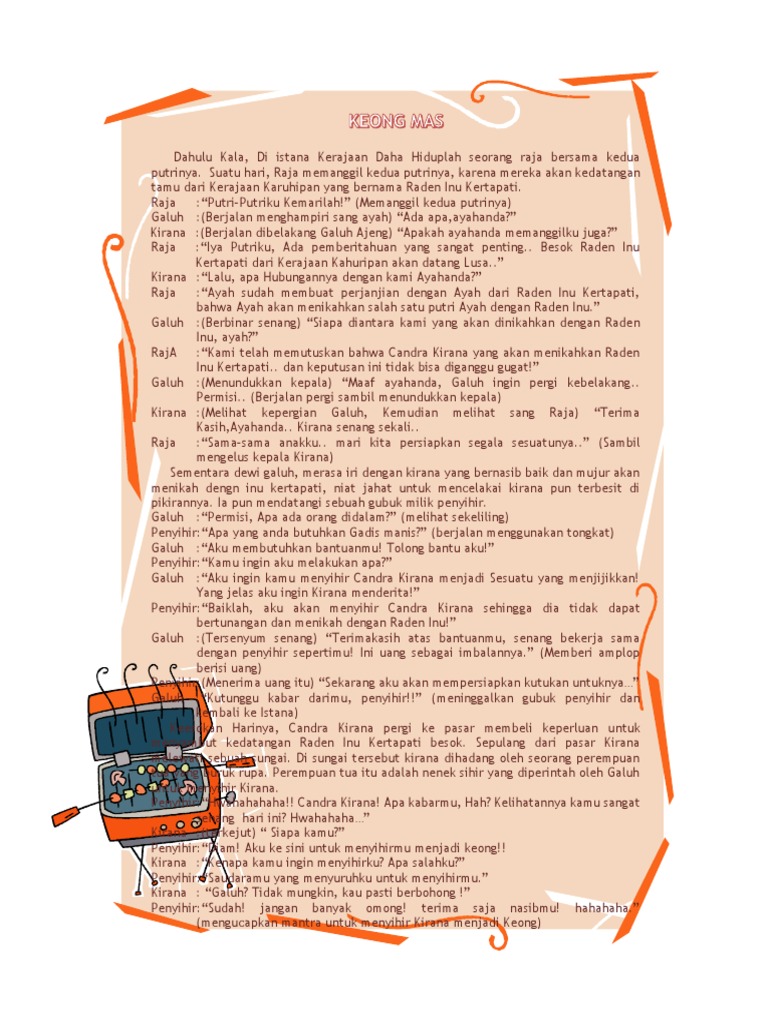 KEONG MAS
Dahulu Kala, Di istana Kerajaan Daha Hiduplah seorang raja bersama kedua
putrinya. Suatu hari, Raja memanggil kedua putrinya, karena mereka akan kedatangan
tamu dari Kerajaan Karuhipan yang bernama Raden Inu Kertapati.
Raja :“Putri-Putriku Kemarilah!” (Memanggil kedua putrinya)
Galuh :(Berjalan menghampiri sang ayah) “Ada apa,ayahanda?”
Kirana :(Berjalan dibelakang Galuh Ajeng) “Apakah ayahanda memanggilku juga?”
Raja :“Iya Putriku, Ada pemberitahuan yang sangat penting.. Besok Raden Inu
Kertapati dari Kerajaan Kahuripan akan datang Lusa..”
Kirana :“Lalu, apa Hubungannya dengan kami Ayahanda?”
Raja :“Ayah sudah membuat perjanjian dengan Ayah dari Raden Inu Kertapati,
bahwa Ayah akan menikahkan salah satu putri Ayah dengan Raden Inu.”
Galuh :(Berbinar senang) “Siapa diantara kami yang akan dinikahkan dengan Raden
Inu, ayah?”
RajA :“Kami telah memutuskan bahwa Candra Kirana yang akan menikahkan Raden
Inu Kertapati.. dan keputusan ini tidak bisa diganggu gugat!”
Galuh :(Menundukkan kepala) “Maaf ayahanda, Galuh ingin pergi kebelakang..
Permisi.. (Berjalan pergi sambil menundukkan kepala)
Kirana :(Melihat kepergian Galuh, Kemudian melihat sang Raja) “Terima
Kasih,Ayahanda.. Kirana senang sekali..
Raja :“Sama-sama anakku.. mari kita persiapkan segala sesuatunya..” (Sambil
mengelus kepala Kirana)
Sementara dewi galuh, merasa iri dengan kirana yang bernasib baik dan mujur akan
menikah dengn inu kertapati, niat jahat untuk mencelakai kirana pun terbesit di
pikirannya. Ia pun mendatangi sebuah gubuk milik penyihir.
Galuh :“Permisi, Apa ada orang didalam?” (melihat sekeliling)
Penyihir:“Apa yang anda butuhkan Gadis manis?” (berjalan menggunakan tongkat)
Galuh :“Aku membutuhkan bantuanmu! Tolong bantu aku!”
Penyihir:“Kamu ingin aku melakukan apa?”
Galuh :“Aku ingin kamu menyihir Candra Kirana menjadi Sesuatu yang menjijikkan!
Yang jelas aku ingin Kirana menderita!”
Penyihir:“Baiklah, aku akan menyihir Candra Kirana sehingga dia tidak dapat
bertunangan dan menikah dengan Raden Inu!”
Galuh :(Tersenyum senang) “Terimakasih atas bantuanmu, senang bekerja sama
dengan penyihir sepertimu! Ini uang sebagai imbalannya.” (Memberi amplop
berisi uang)
Penyihir:(Menerima uang itu) “Sekarang aku akan mempersiapkan kutukan untuknya…”
Galuh :“Kutunggu kabar darimu, penyihir!!” (meninggalkan gubuk penyihir dan
kembali ke Istana)
Harinya, Candra Kirana pergi ke pasar membeli keperluan untuk
kedatangan Raden Inu Kertapati besok. Sepulang dari pasar Kirana
sebuah sungai. Di sungai tersebut kirana dihadang oleh seorang perempuan
buruk rupa. Perempuan tua itu adalah nenek sihir yang diperintah oleh Galuh
menyihir Kirana.
Penyihir:“Hwahahahaha!! Candra Kirana! Apa kabarmu, Hah? Kelihatannya kamu sangat
senang hari ini? Hwahahaha…”
Kirana :(Terkejut) “ Siapa kamu?”
Penyihir:“Diam! Aku ke sini untuk menyihirmu menjadi keong!!
Kirana :“Kenapa kamu ingin menyihirku? Apa salahku?”
Penyihir:“Saudaramu yang menyuruhku untuk menyihirmu.”
Kirana : “Galuh? Tidak mungkin, kau pasti berbohong !”
Penyihir:“Sudah! jangan banyak omong! terima saja nasibmu! hahahaha.”
(mengucapkan mantra untuk menyihir Kirana menjadi Keong)